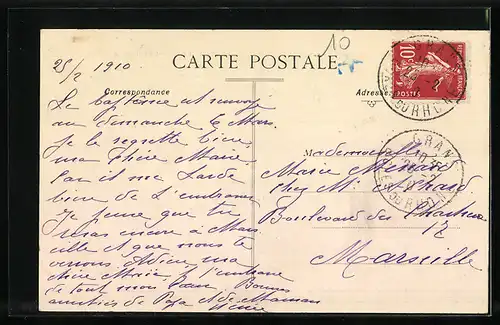 10
25/2 1910
CARTE POSTALE
Correspondance
Adresse
10c
POSTES
La Cafférence est renvoyé
au dimanche 6 Mars.
Je le regrette bien,
ma chère Marie
Car il me tarde
bien de t'embrasser
Je pense que tu
seras encore à Mars
eille et que nous te
verrons. Adieu ma
chère Marie je t'embrasse
de tout mon cœur. Bonnes
amitiés de Papa et de Maman
Mademoiselle
Marie
chez M.
Boulevard des Chartreux
12
Marseille
GRANS
BCHES DU RHONE